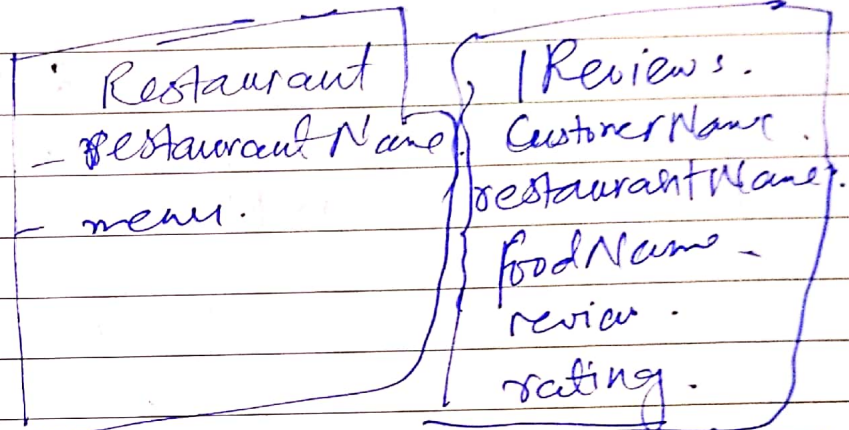 Restaurant
- restaurantName
- menu.
Reviews.
CustomerName.
restaurantName.
foodName -
review.
rating.